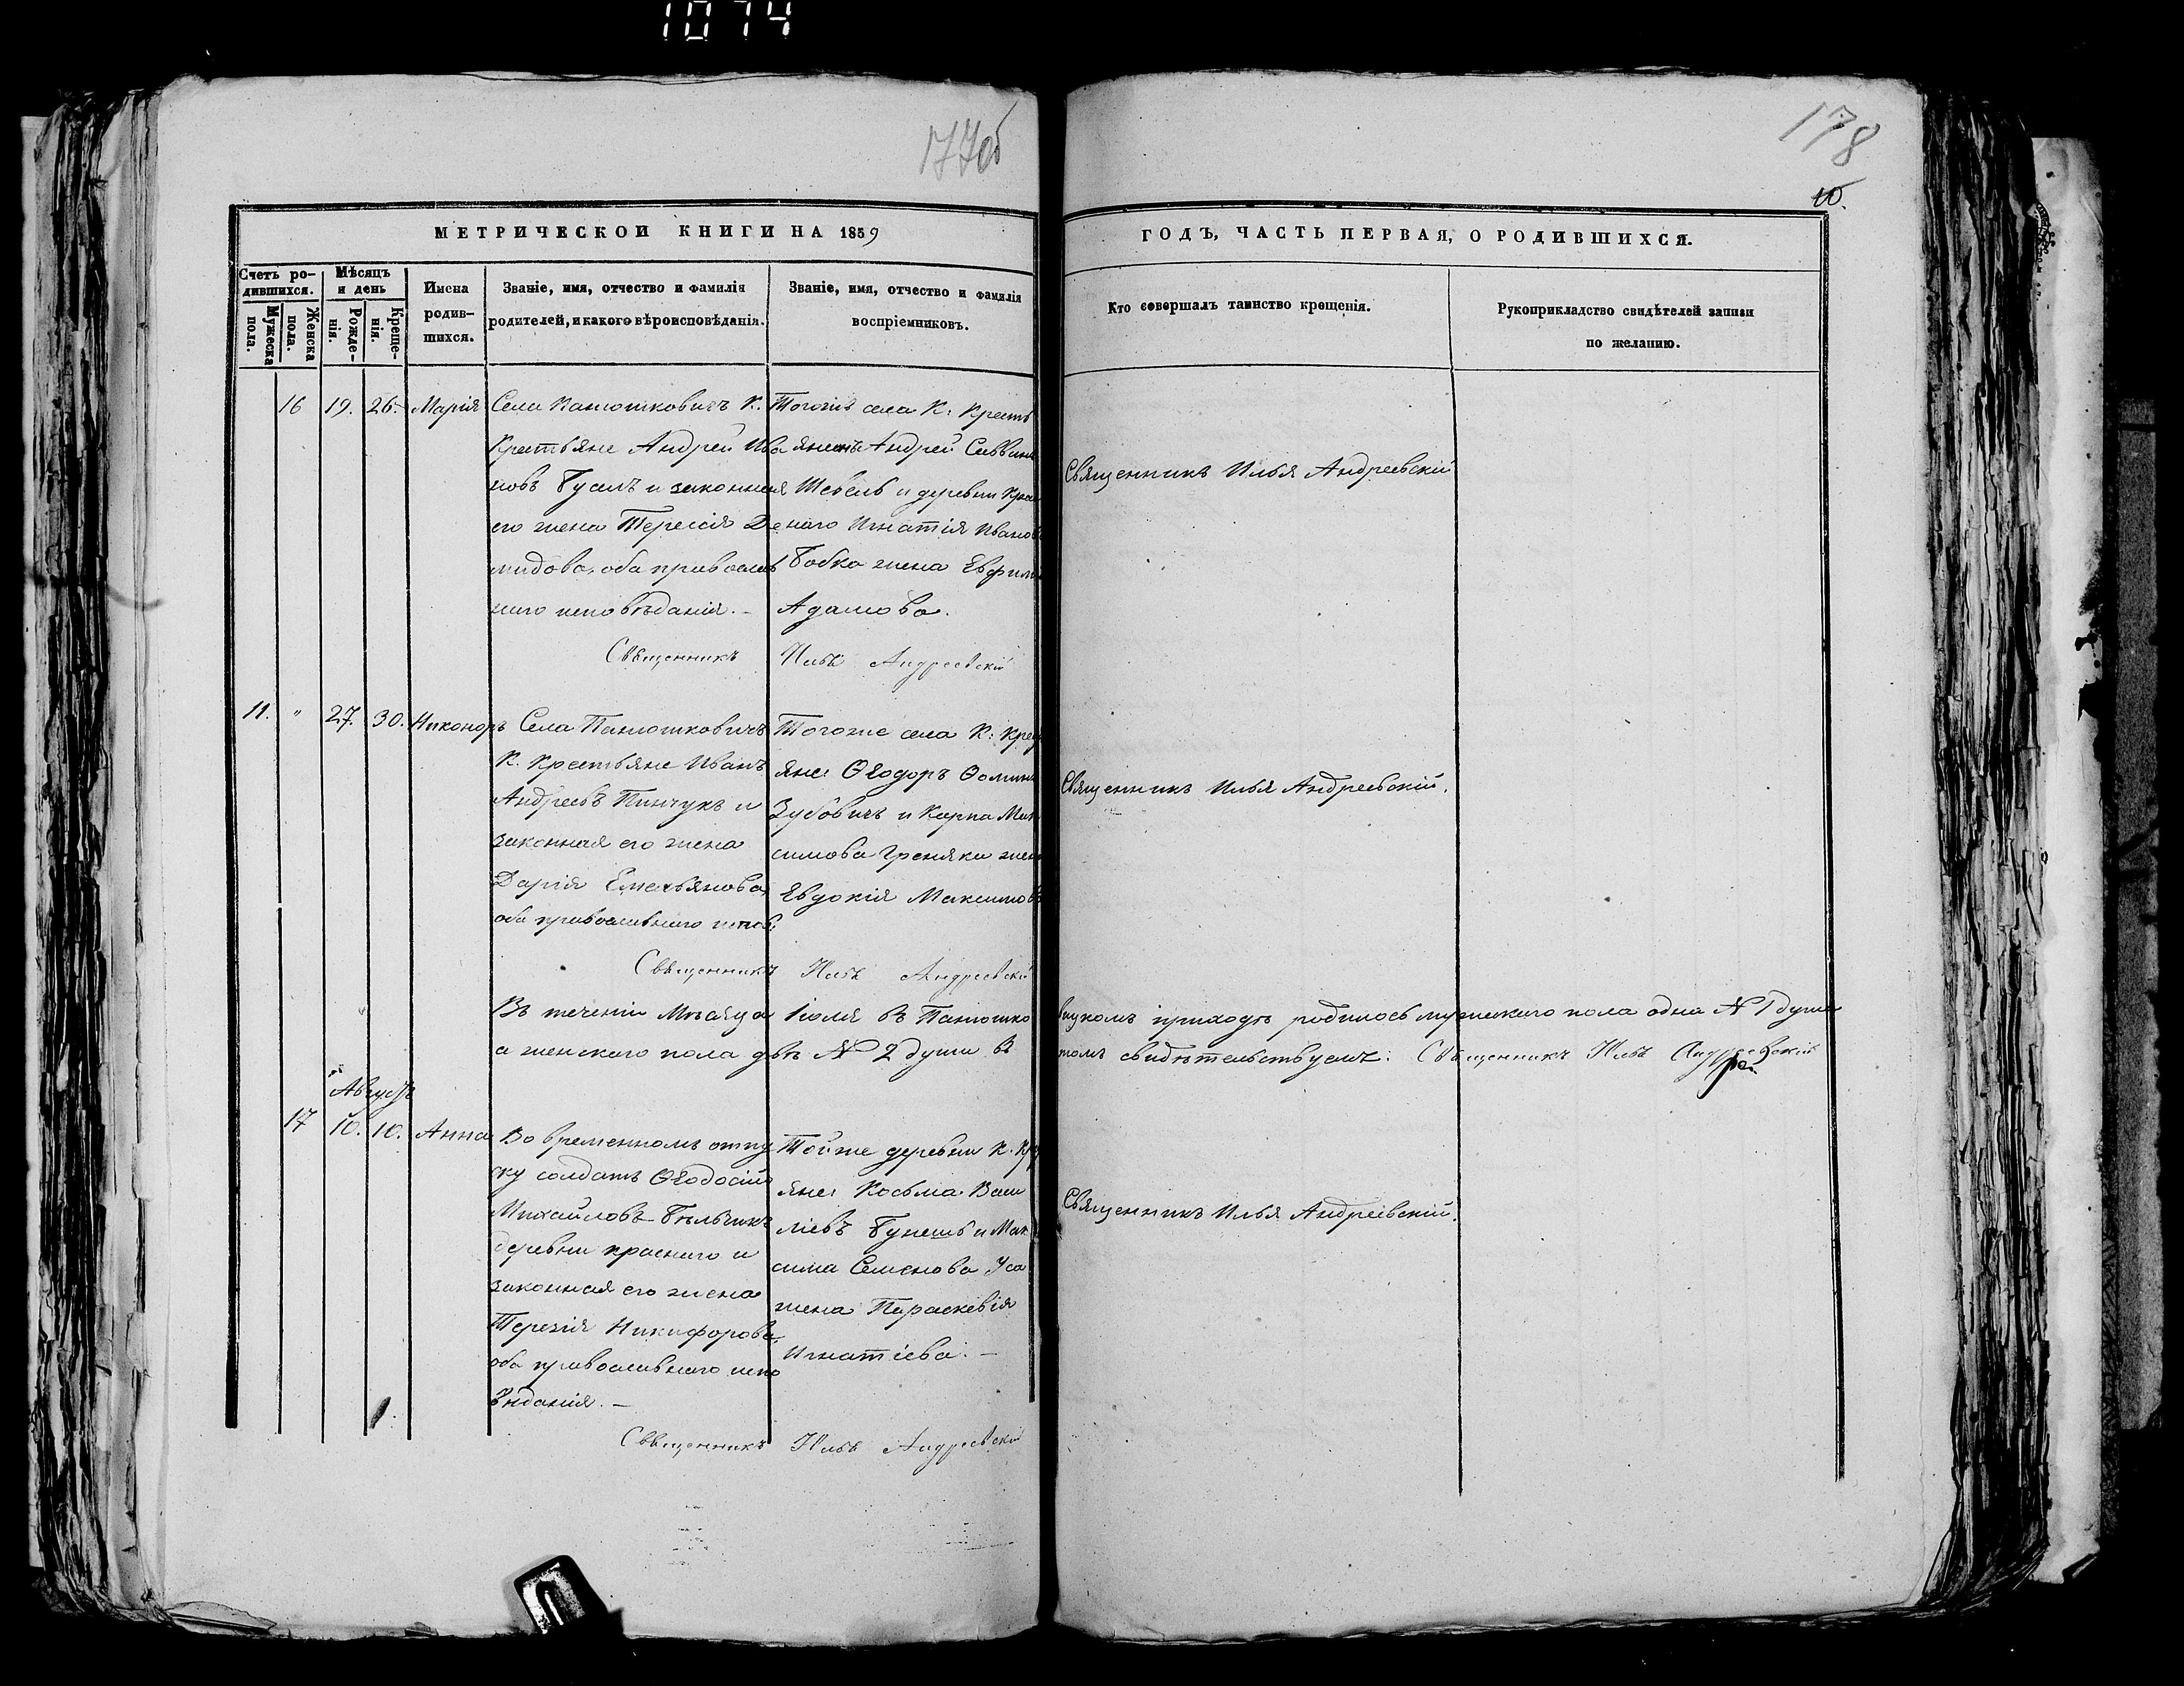 1074
177об
178
10.
МЕТРИЧЕСКОЙ КНИГИ НА 1859
ГОДЪ, ЧАСТЬ ПЕРВАЯ, О РОДИВШИХСЯ.
Счетъ ро-
дившихся.
Мужеска
пола.
Женска
пола.
Мѣсяцъ
и день
Рожде-
нія.
Креще-
нія.
Имена
родив-
шихся.
Званіе, имя, отчество и фамилія
родителей, и какого вѣроисповѣданія.
Званіе, имя, отчество и фамилія
воспріемниковъ.
Кто совершалъ таинство крещенія.
Рукоприкладство свидѣтелей записи
по желанію.
16 19. 26. Марія
Села Панюшковичъ К.
Крестьяне Андрей Ива
новъ Бусел и законная
его жена Терессія Де
мидова, оба православ
наго исповѣданія.—
Тогоже села К: Кресть
янинъ Андрей Саввинъ
Шевель и деревни Крас
наго Игнатія Иванова
Бобка жена Евфимі
Адамова.
Священникъ Илья Андреевскій
Священникъ Илья Андреевскій
11. " 27. 30. Никоноръ
Села Панюшковичъ
К. Крестьяне Иванъ
Андреевъ Пинчукъ и
законная его жена
Дарія Емельянова,
оба православнаго испов:
Тогоже села К: Крес
яне: Ѳеодоръ Ѳомин
Зубовичъ и Карпа Мак
симова Греняка жен
Евдокія Максимов
Священникъ Илья Андреевскій.
Священникъ Илья Андреевскій
Въ теченіи Мѣсяца Іюля въ Панюшко
вицкомъ приходѣ родилось мужескаго пола одна № 1 душа
а женскаго пола двѣ № 2 души в
томъ свидѣтельствуемъ: Священникъ Илья Андреевскій
Августъ
17 10. 10. Анна
Во временномъ отпу
ску солдатъ Ѳеодосій
Михайловъ Бѣльчикъ
деревни Краснаго и
законная его жена
Терезія Никифорова,
оба православнаго испо
вѣданія.—
Тойже деревни К. Кр
яне: Косьма Васи
ліевъ Бунешь и Мак
сима Семенова Уса
жена Параскевія
Игнатіева.—
Священникъ Илья Андреевскій.
Священникъ Илья Андреевскій